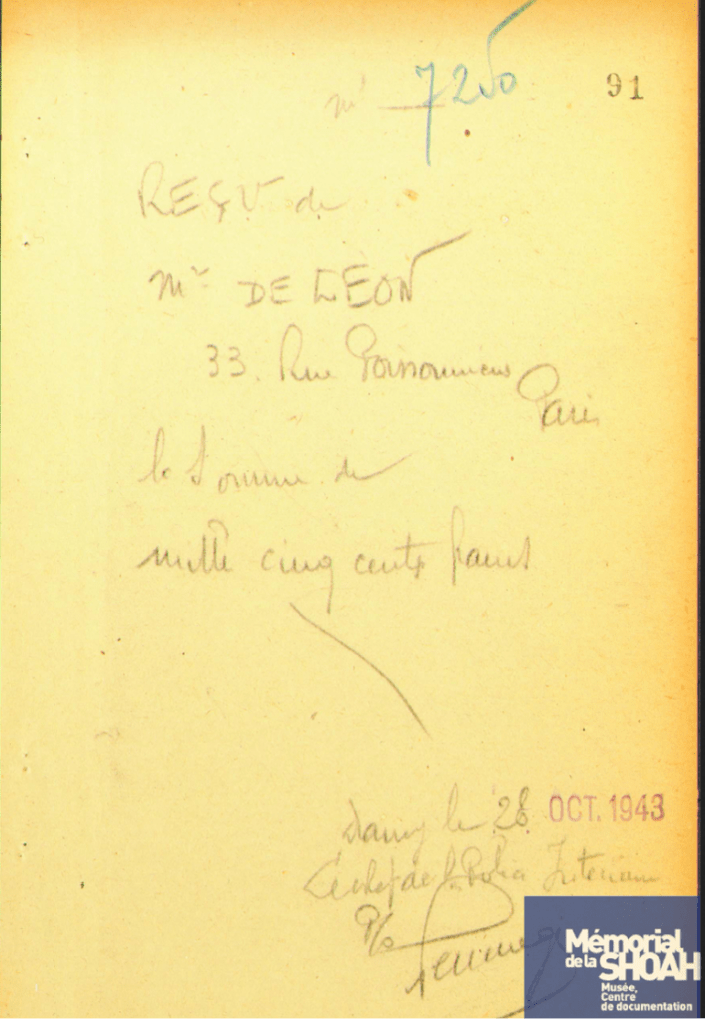 nº 7250
91
REÇU de
Mr DE LEON
33. Rue Poissonniere
Paris
la Somme de
mille cinq cents francs
Drancy le 28 OCT. 1943
Le chef de la Police Interieure
P/o
Mémorial
de la SHOAH
Musée,
Centre
de documentation